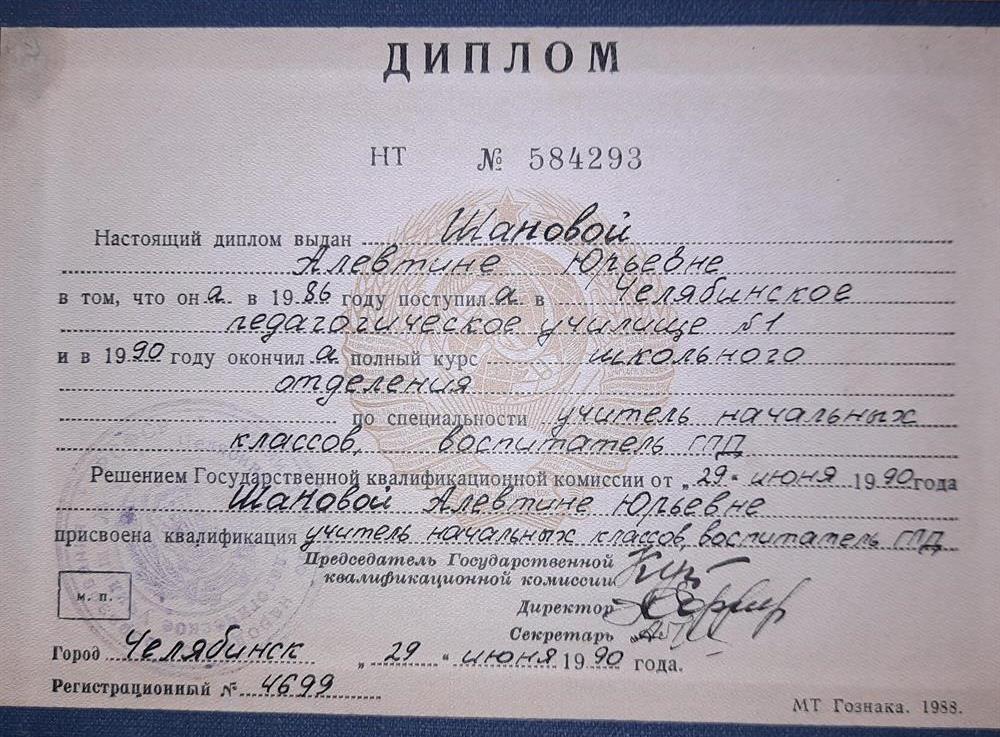 ДИПЛОМ
НТ № 584293
Настоящий диплом выдан Шановой
Алевтине Юрьевне
в том, что она в 1986 году поступила в Челябинское
педагогическое училище №1
и в 1990 году окончила полный курс школьного
отделения
по специальности учитель начальных
классов, воспитатель ГПД
Решением Государственной квалификационной комиссии от „29“ июня 1990 года
Шановой Алевтине Юрьевне
присвоена квалификация учитель начальных классов, воспитатель ГПД
Председатель Государственной
квалификационной комиссии
Директор
Секретарь
м. п.
Город Челябинск „29“ июня 1990 года.
Регистрационный № 4699
МТ Гознака. 1988.